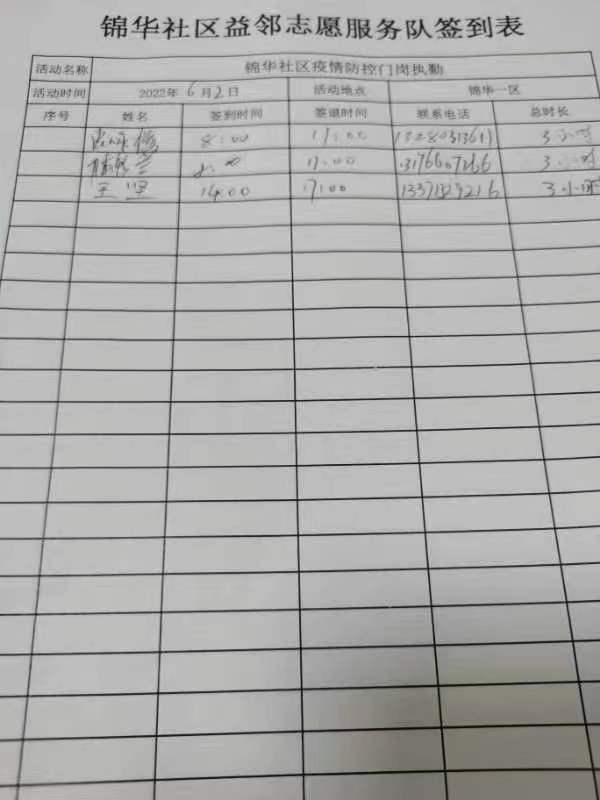 锦华社区益邻志愿服务队签到表
活动名称 锦华社区疫情防控门岗执勤
活动时间 2022年 6月2日 活动地点 锦华一区
序号 姓名 签到时间 签退时间 联系电话 总时长
8:00 11:00 3小时
11:00 3小时
王坚 14:00 17:00 3小时